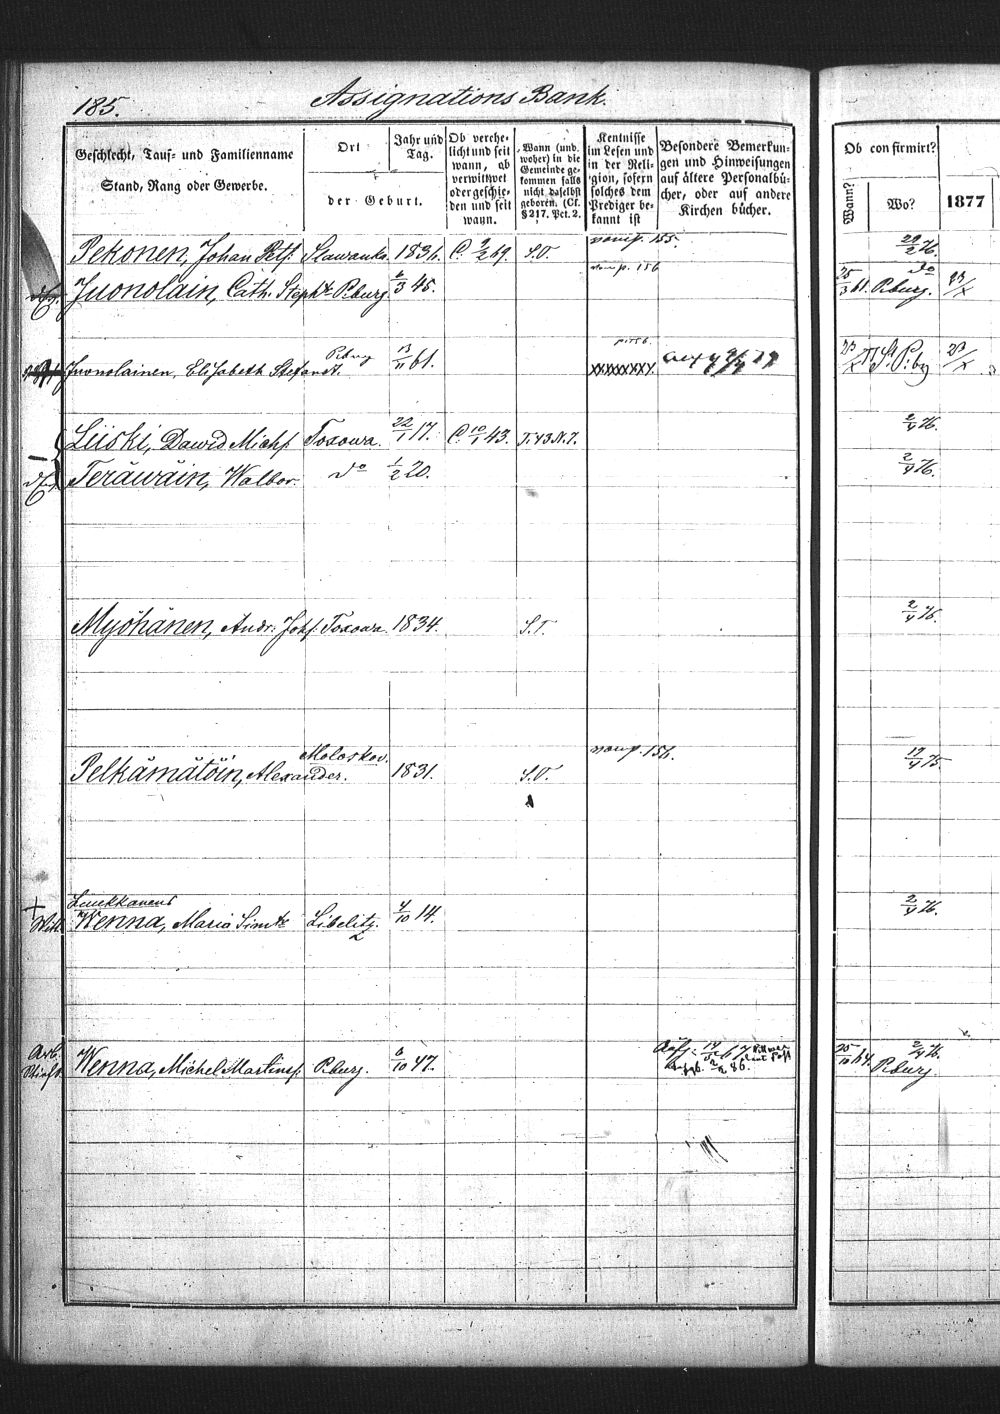 185.
Assignations Bank.
Geschlecht, Tauf- und Familienname
Stand, Rang oder Gewerbe.
Ort
der Geburt.
Jahr und
Tag.
Ob verehe-
licht und seit
wann, ob
verwittwet
oder geschie-
den und seit
wann.
Wann (und
woher) in die
Gemeinde ge-
kommen falls
nicht daselbst
geboren. (Cf.
§ 217. Pct. 2.
Kentnisse
im Lesen und
in der Reli-
gion, sofern
solches dem
Prediger be-
kannt ist
Besondere Bemerkun-
gen und Hinweisungen
auf ältere Personalbü-
cher, oder auf andere
Kirchen bücher.
Ob confirmirt?
Wann?
Wo?
1877
Pekonen, Johan Petf. Slawanka. 1836. C. 9/2 69. S.O. 155. 29/2 76.
Juonolain, Cath. Steph P.burg. 6/3 45. 156 25/3 61. P.burg. do 23/X
Juonolainen, Elisabeth Stefandt. P.burg 13/11 61. p. 156. xxxxxxxx 23/X St P.bg 23/X
Liiski, Dawid Michf. Toxowa. 22/1 17. C. 10/1 43. T. 43. N. 7. 2/4 76.
Teräwäin, Walbor. do 1/2 20. 2/4 76.
Myöhänen, Andr. Johf. Toxowa. 1834. S.T. 2/4 76.
Pelkämätöin, Alexander. Moloskov. 1831. S.O. 156. 17/4 75.
Wenna, Maria Simtr Libelitz. 4/10 14. 2/4 76.
Arb.
Wenna, Michel Martinsf. P.burg. 6/10 47. 25/10 64. P.burg. 2/4 76.